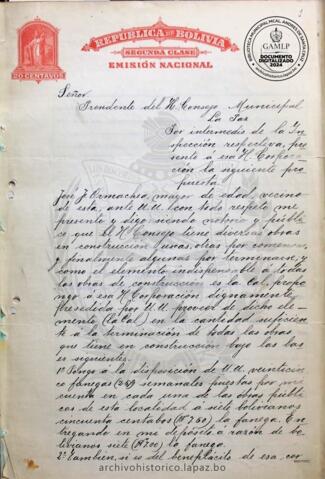 REPÚBLICA DE BOLIVIA
SEGUNDA CLASE
EMISIÓN NACIONAL
20 CENTAVOS
BIBLIOTECA MUNICIPAL MCAL. ANDRÉS DE SANTA CRUZ
GAMLP
DOCUMENTO
DIGITALIZADO
2024
1
Señor
Presidente del H. Consejo Municipal
La Paz
Por intermedio de la Yns
pección respectiva, pre
sente á esa H. Corpora
ción la siguiente pro
puesta
José J. Ormachea, mayor de edad, vecino
de esta, ante U.U. con todo respeto me
presento y digo: siendo notorio y públi
co que el H. Consejo tiene diversas obras
en construcción unas, otras por comenzar
y finalmente algunas por terminar, y
como el elemento indispensable á todas
las obras de construcción es la Cal, propo
ngo á esa H. Corporación dignamente
presedida por U.U. proveer de dicho ele
mento (la Cal) en la cantidad suficien
te á la terminación de todas las obras
que tiene en construcción bajo las ba
ses siguientes:
1ª Pongo á la disposición de U.U. veinticin
co fanegas semanales puestas por mi
cuenta en cada una de las obras públi
cas de esta localidad á siete bolivianos
cincuenta centabos (Bs 7.50) la fanega. En
tregando en mi depósito á razón de bo
livianos siete (Bs 7.00) la fanega.
2ª Tambien, si es del beneplácito de esa cor
archivohistorico.lapaz.bo